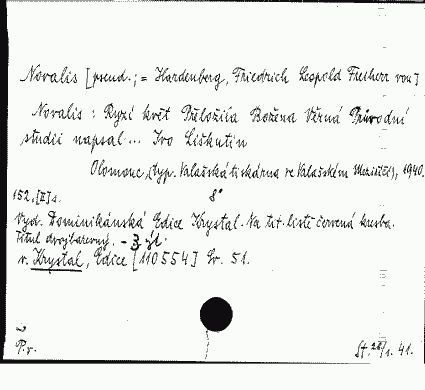 Novalis [pseud.; = Hardenberg, Friedrich Leopold Freiherr von]
Novalis: Ryzí květ Přeložila Božena Věrná Průvodní
studii napsal... Ivo Liškutin
Olomouc, (typ. Valašská tiskárna ve Valašském Meziříčí), 1940.
152, [II] s. 8°
Vyd. Dominikánská Edice Krystal. Na tit. listě červená kresba.
Titul dvojbarevný. - 3 př.
v. Krystal, Edice [110554] Sv. 51.
P. v.
St. 28/1. 41.